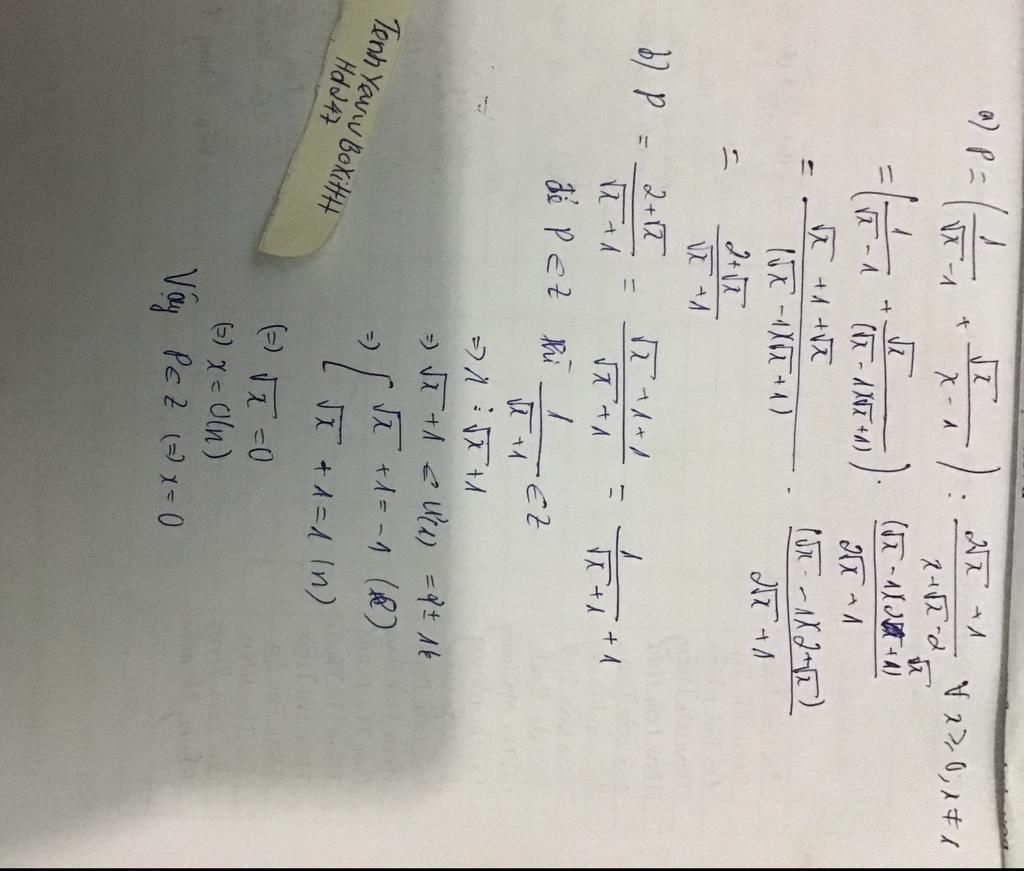 a) P = (1/(√x - 1) + √x/(x - 1)) : (2√x + 1)/(x + √x - 2) ∀ x ≥ 0, x ≠ 1
= (1/(√x - 1) + √x/((√x - 1)(√x + 1))) · ((√x - 1)(2 + √x))/(2√x + 1)
= (√x + 1 + √x)/((√x - 1)(√x + 1)) · ((√x - 1)(2 + √x))/(2√x + 1)
= (2 + √x)/(√x + 1)
b) P = (2 + √x)/(√x + 1) = (√x + 1 + 1)/(√x + 1) = 1/(√x + 1) + 1
để P ∈ Z thì 1/(√x + 1) ∈ Z
=> 1 ⋮ √x + 1
=> √x + 1 ∈ Ư(1) = {± 1}
=> { √x + 1 = -1
√x + 1 = 1 (n)
(=) √x = 0
(=) x = 0 (n)
Vậy P ∈ Z (=) x = 0
BoXiHH
Hdv247